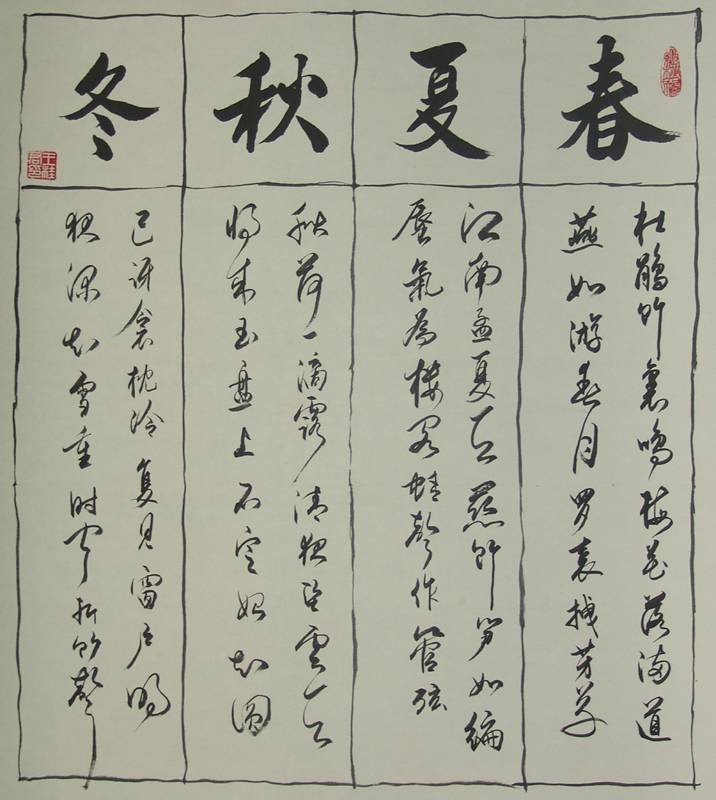 春
杜鵑竹裏鳴梅花落满道
燕如游春月罗裳拽芳草
夏
江南孟夏天慈竹笋如编
蜃氣為楼阁蛙聲作管弦
秋
秋荷一滴露清夜坠玄天
将来玉盘上不定始知圆
冬
已訝衾枕冷复见窗户明
夜深知雪重时闻折竹聲